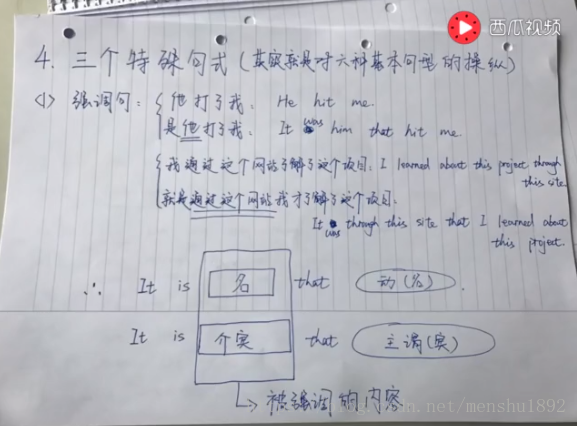 西瓜视频
4. 三个特殊句式(其实就是对六种基本句型的操纵)
<1> 强调句: 他打了我: He hit me.
是他打了我: It was him that hit me.
我通过这个网站了解了这个项目: I learned about this project through this site.
就是通过这个网站我才了解了这个项目.
It was through this site that I learned about this project.
∴ It is 名 that 动(名).
It is 介宾 that 主谓(宾)
被强调的内容
net/menshu1892